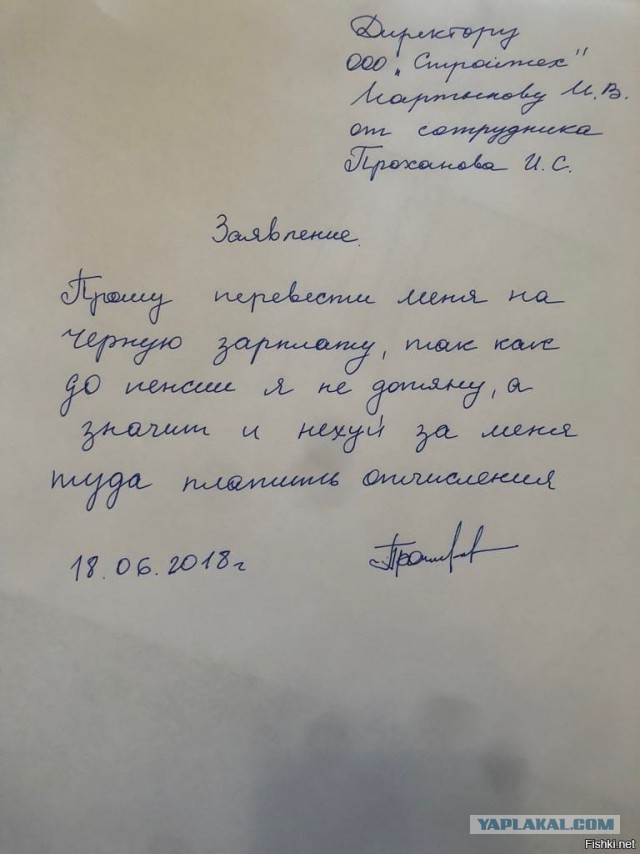 Директору
ООО „Стройтех"
Мартынову И.В.
от сотрудника
Проханова И.С.
Заявление.
Прошу перевести меня на
черную зарплату, так как
до пенсии я не дотяну, а
значит и нехуй за меня
туда платить отчисления
18.06.2018г
YAPLAKAL.COM
Fishki.net